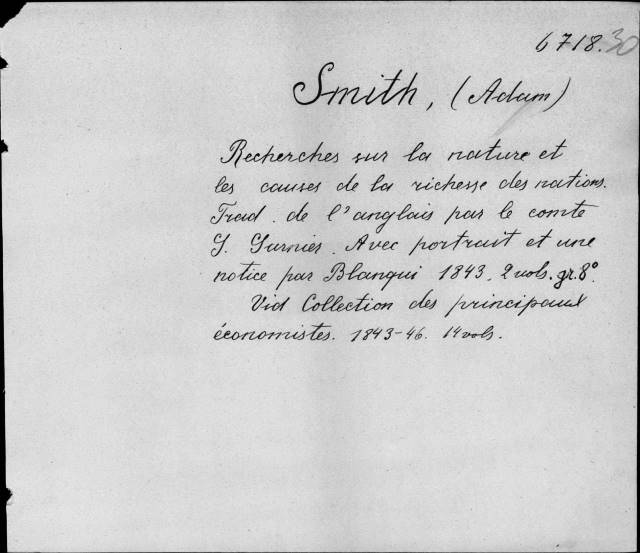 6718.30
Smith, (Adam)
Recherches sur la nature et
les causes de la richesse des nations.
Trad. de l'anglais par le comte
G. Garnier. Avec portrait et une
notice par Blanqui 1843. 2 vols. gr. 8°.
Vid Collection des principaux
économistes. 1843-46. 14 vols.